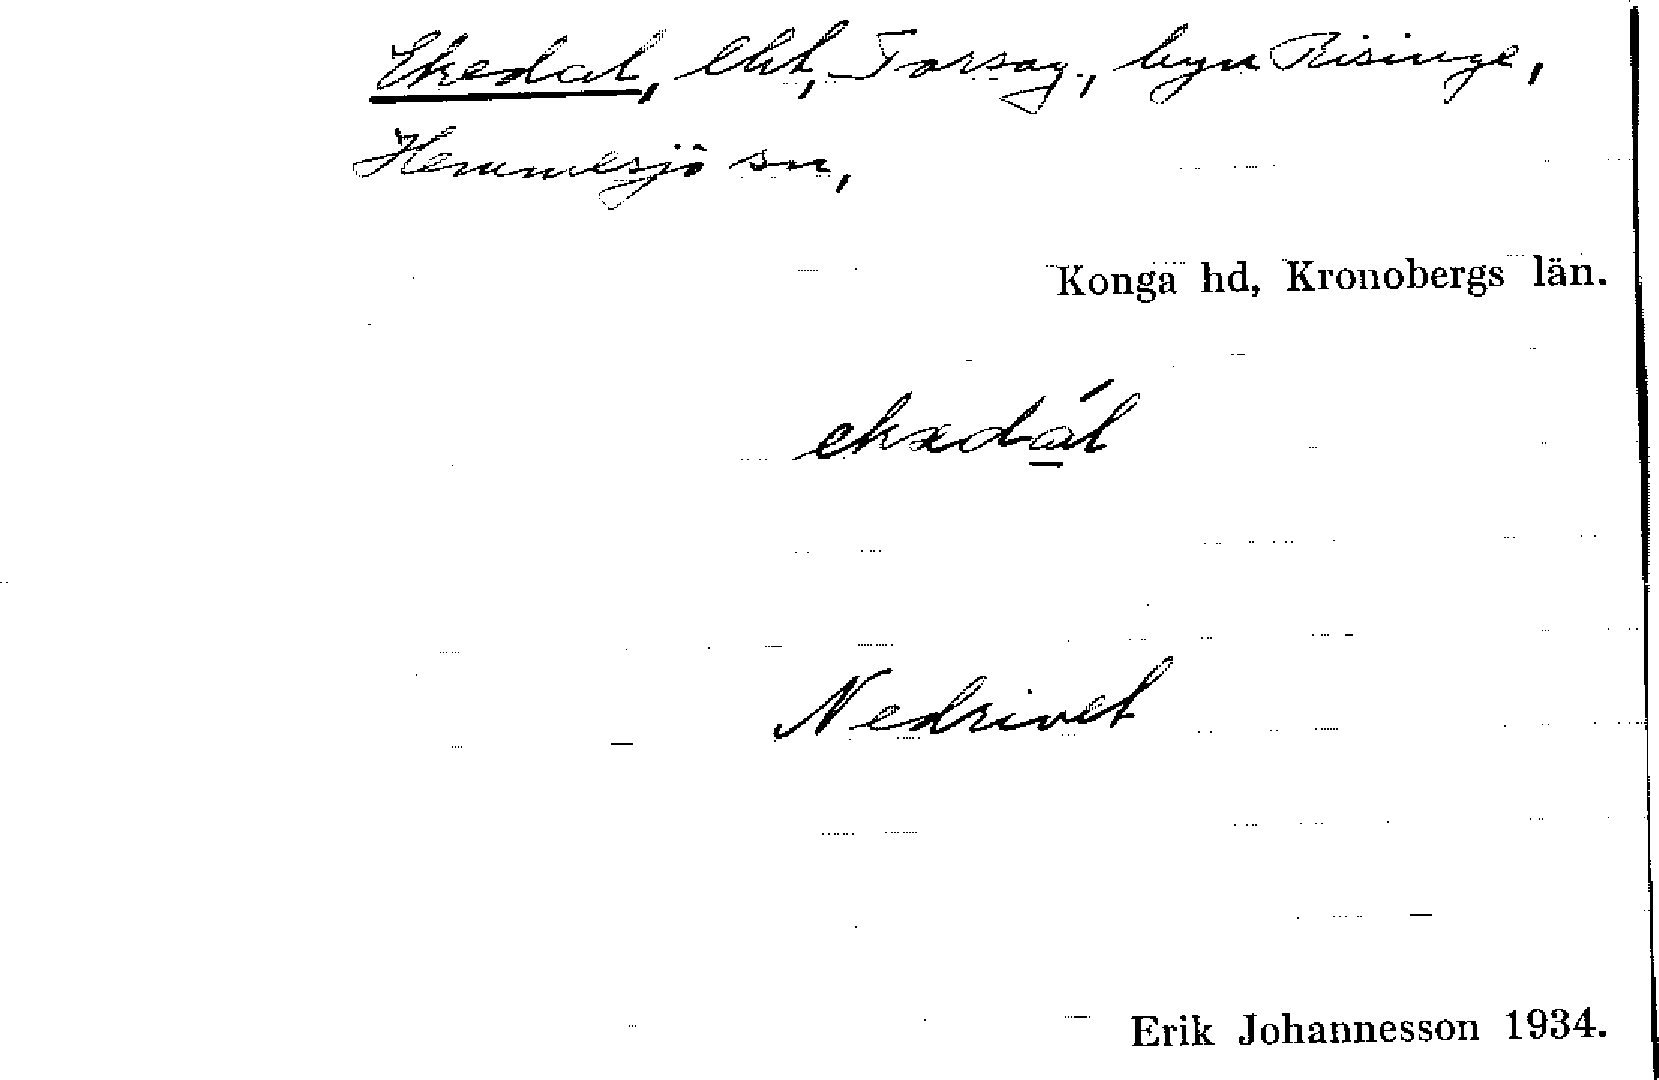 Ekedal, lht, Torsag., byn Risinge,
Hemmesjö sn,
Konga hd, Kronobergs län.
ekədál
Nedrivet
Erik Johannesson 1934.